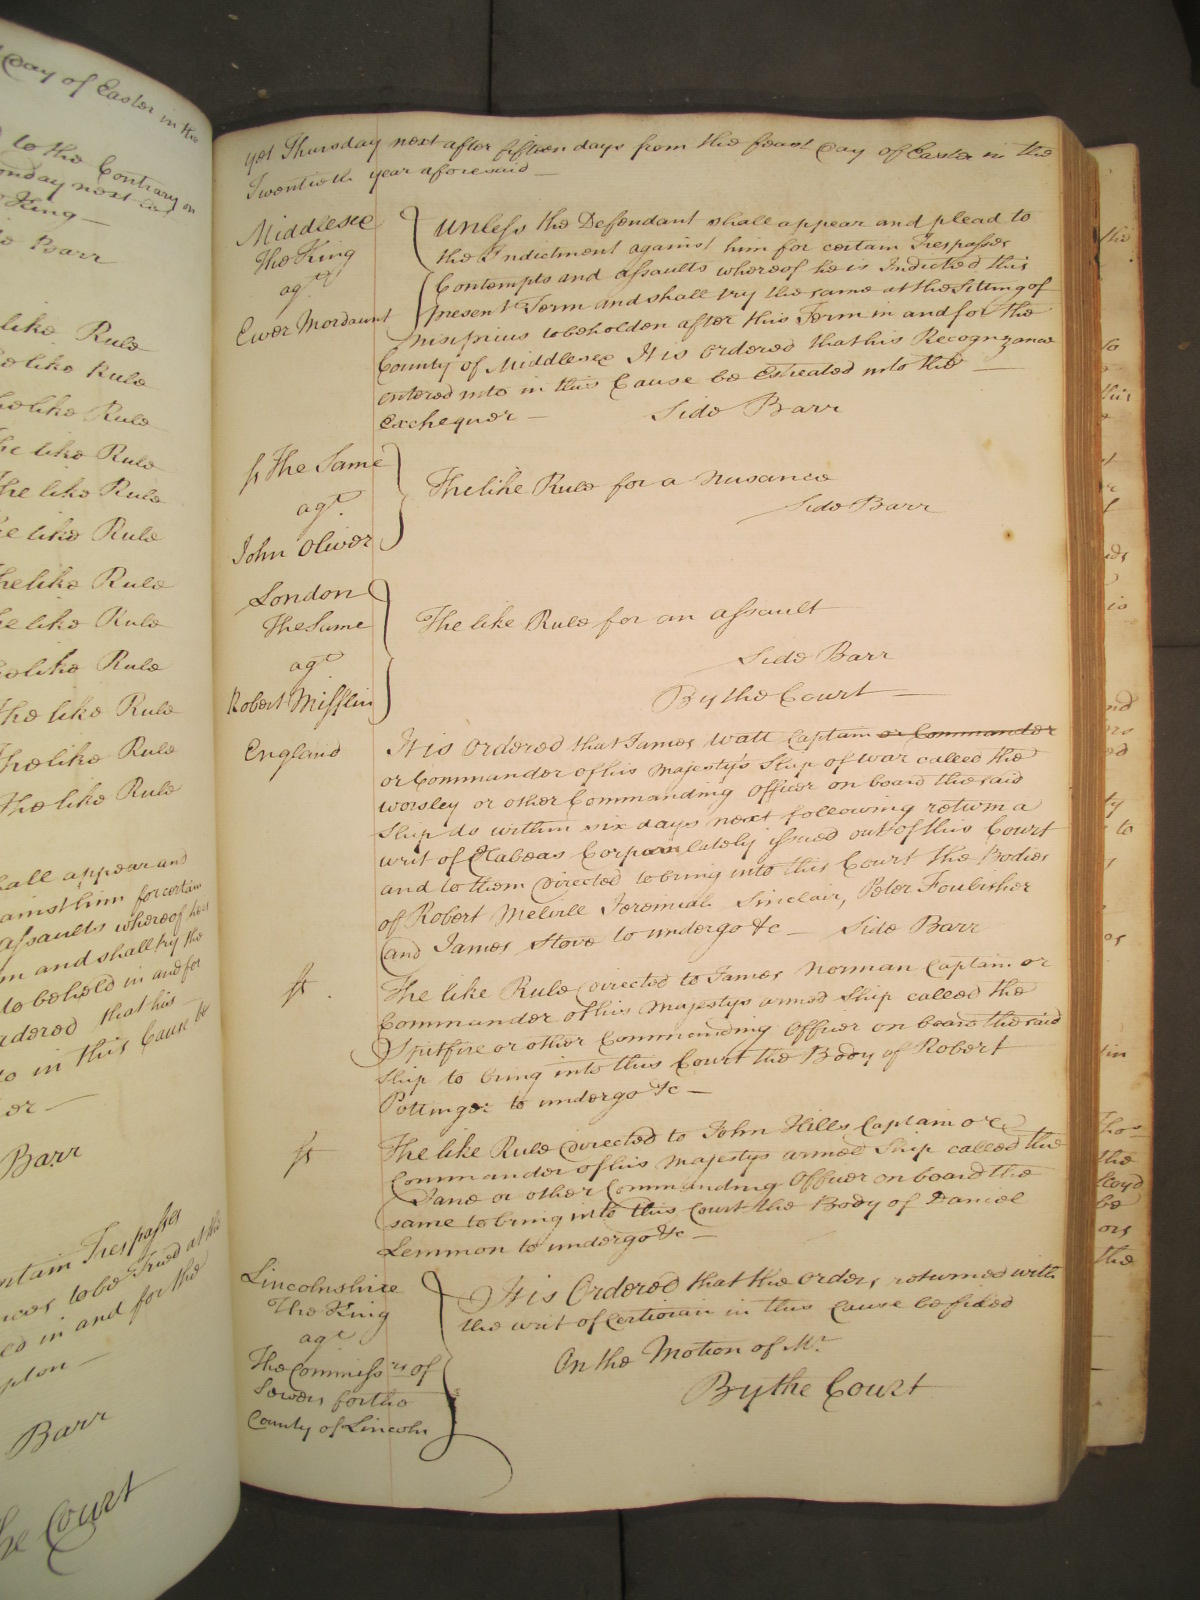 Day of Easter in the
to the Contrary on
onday next
King
Barr
like Rule
like Rule
like Rule
like Rule
The like Rule
like Rule
The like Rule
like Rule
like Rule
The like Rule
The like Rule
The like Rule
hall appear and
against him for certain
assaults whereof he is
and shall try the
to be held in and for
ordered that his
in this Cause be
Barr
Trespasses
to be Tried at the
in and for the
Barr
The Court
yet Thursday next after fifteen days from the feast Day of Easter in the
Twentieth year aforesaid
Middlesex
The King
agt
Ewer Mordaunt
Unless the Defendant shall appear and plead to
the Indictment against him for certain Trespasses
Contempts and assaults whereof he is Indicted this
present Term and shall try the same at the Sitting of
Nisi prius to be holden after this Term in and for the
County of Middlesex It is Ordered that his Recognizance
entered into in this Cause be Estreated into the
Exchequer — Side Barr
ss The Same
agt
John Oliver
The like Rule for a Nusance
Side Barr
London
The Same
agt
Robert Mifflin
The like Rule for an assault
Side Barr
By the Court
England
It is Ordered that James Watt Captain or Commander
or Commander of his Majesty's Ship of War called the
Worsley or other Commanding Officer on board the said
Ship do within six days next following return a
writ of Habeas Corpora lately issued out of this Court
and to them Directed to bring into this Court the Bodies
of Robert Melvill Jeremiah Sinclair, Peter Foubister
and James Stove to undergo &c — Side Barr
ss
The like Rule Directed to James Norman Captain or
Commander of his Majestys armed Ship called the
Spitfire or other Commanding Officer on board the said
Ship to bring into this Court the Body of Robert
Pottinger to undergo &c —
ss
The like Rule Directed to John Hills Captain or
Commander of his Majestys armed Ship called the
Jane or other Commanding Officer on board the
same to bring into this Court the Body of Daniel
Lemmon to undergo &c —
Lincolnshire
The King
agt
The Commissrs of
Sewers for the
County of Lincoln
It is Ordered that the Orders returned with
the writ of Certiorari in this Cause be filed
On the Motion of Mr.
By the Court